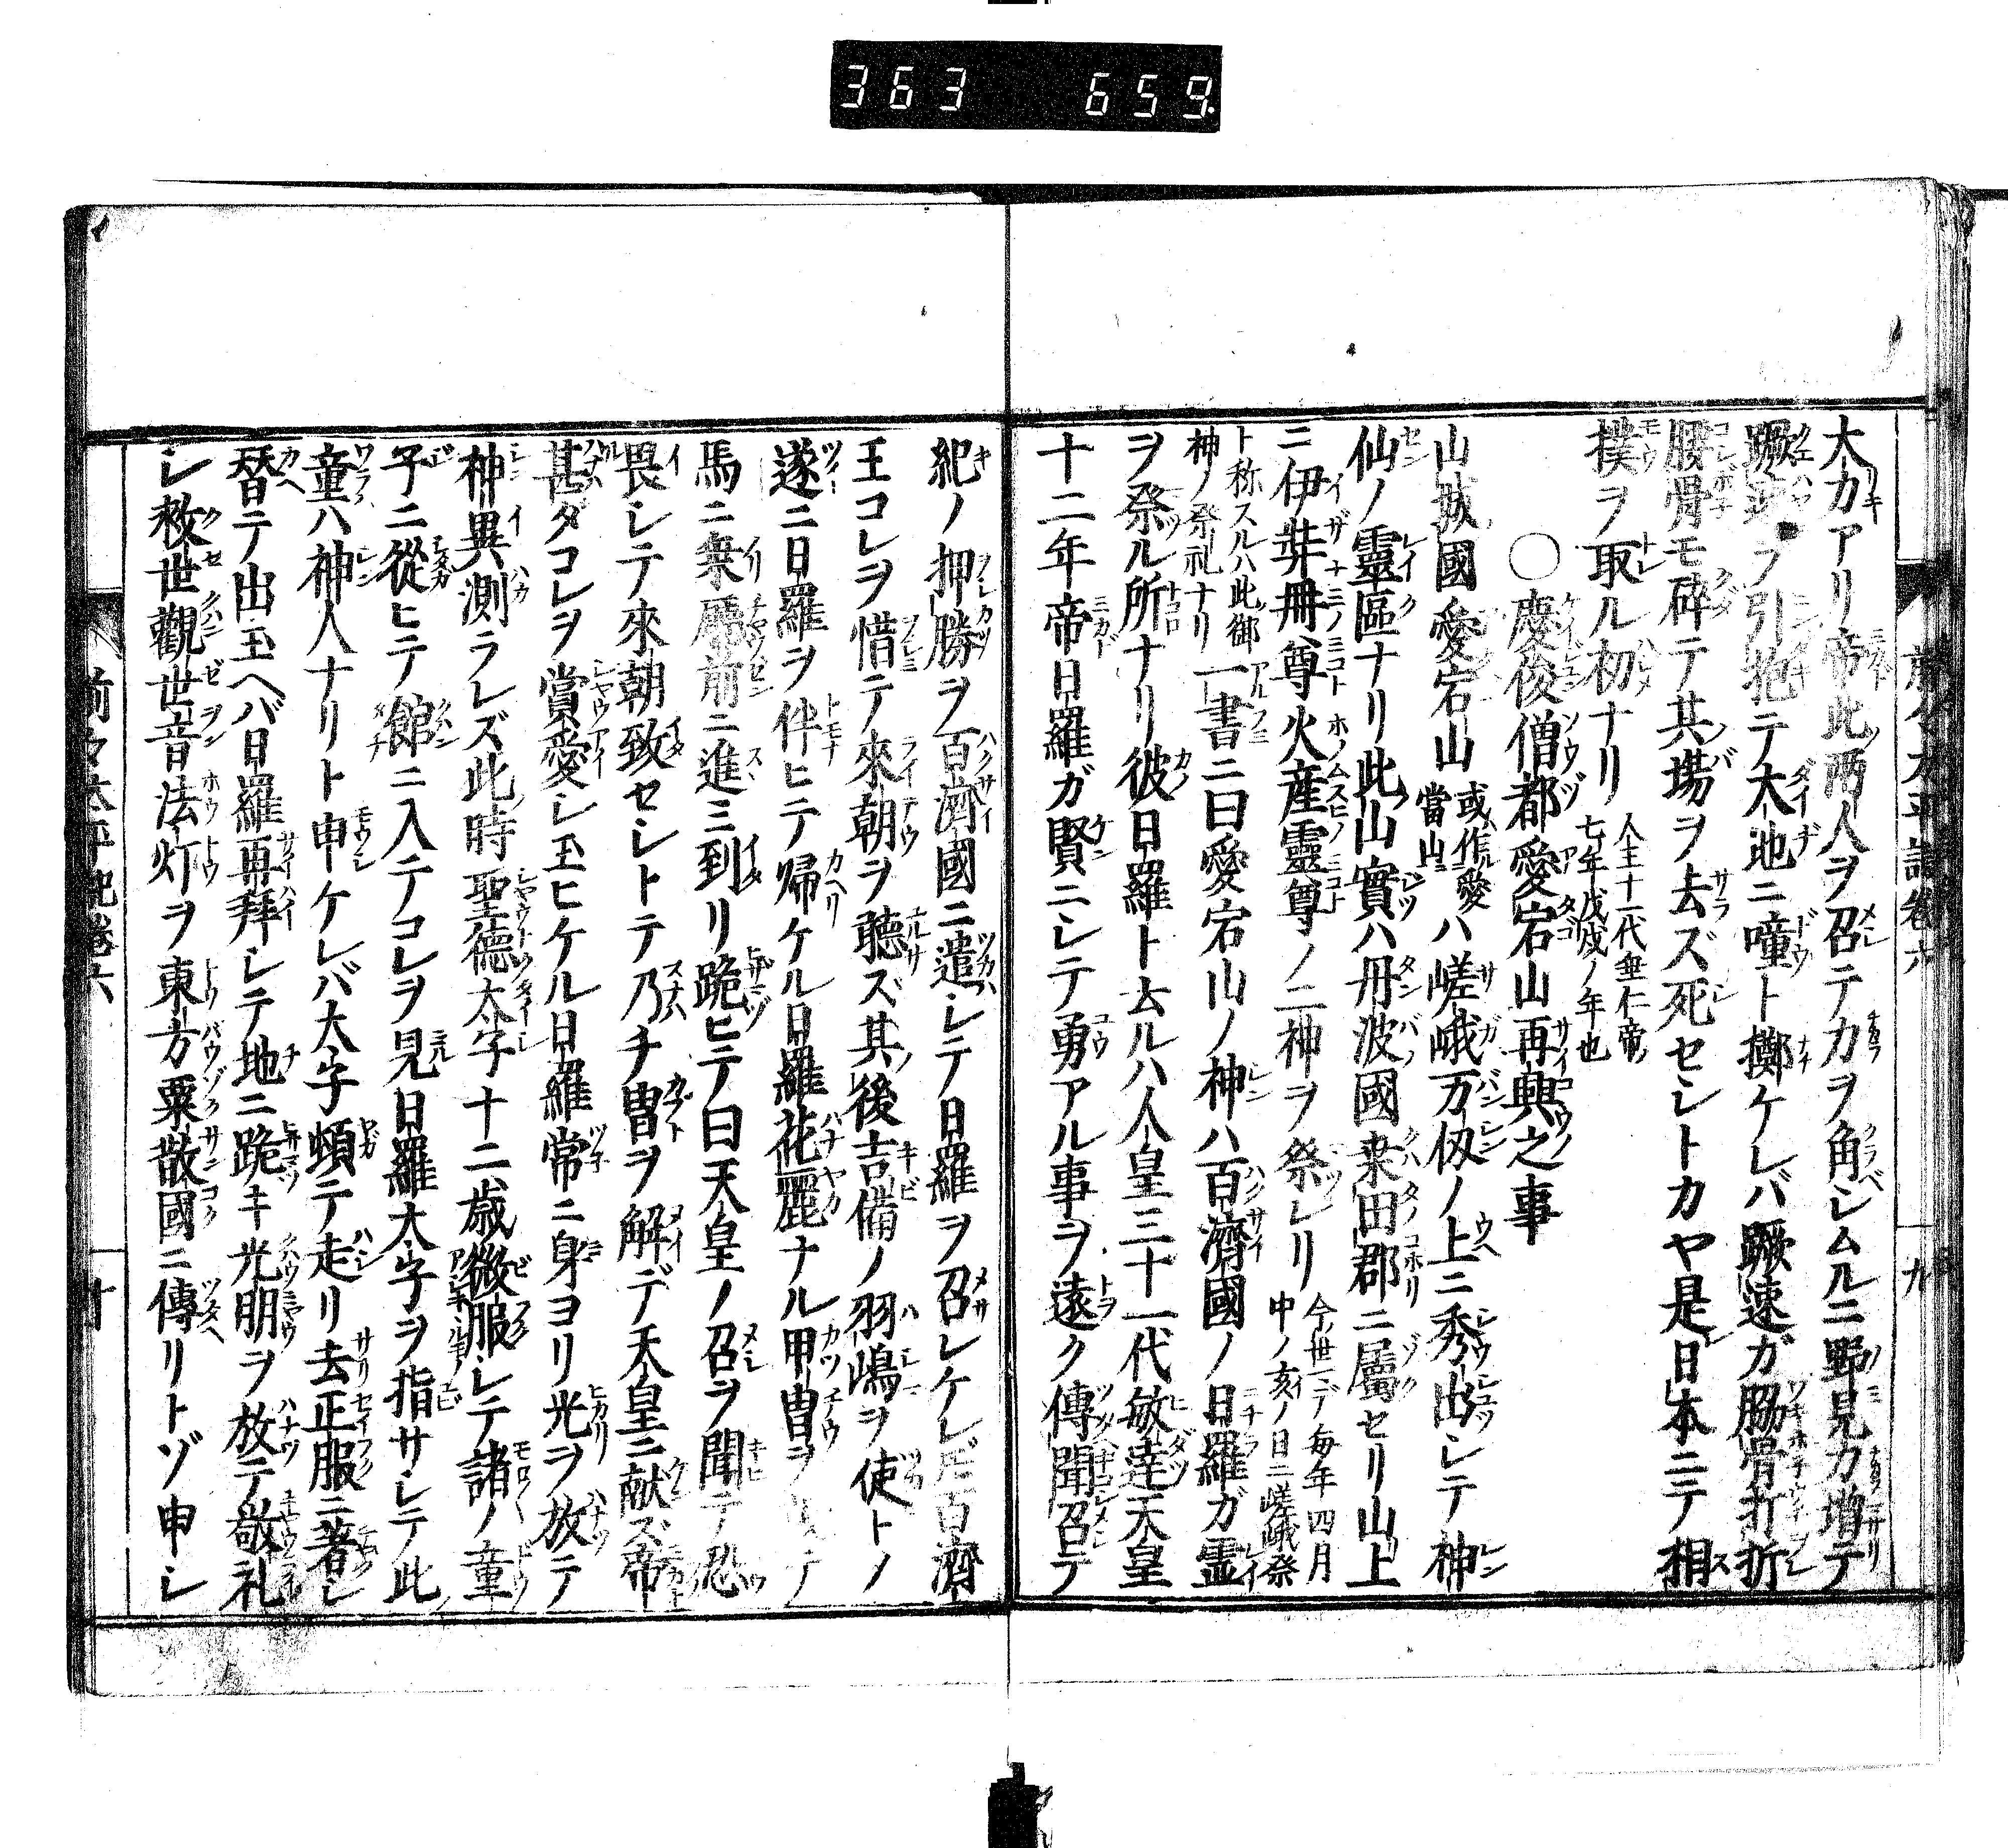 363 659
前々太平記卷六 九
大力アリ帝此兩人ヲ召テ力ヲ角シムルニ野見力增テ
蹶速ヲ引抱テ大地ニ噇ト擲ケレバ蹶速ガ脇骨打折
腰骨モ碎テ其場ヲ去ズ死セシトカヤ是日本ニテ相
撲ヲ取ル初ナリ 人王十一代垂仁帝ノ七年戊戌ノ年也
〇慶俊僧都愛宕山再興之事
山城國愛宕山 或作愛當山 ハ嵯峨万仭ノ上ニ秀出シテ神
仙ノ靈區ナリ此山實ハ丹波國桒田郡ニ屬セリ山上
ニ伊弉冊尊火産靈尊ノ二神ヲ祭レリ 今世ニテ每年四月中ノ亥ノ日ニ嵯峨祭
ト称スルハ此御神ノ祭礼ナリ 一書ニ曰愛宕山ノ神ハ百濟國ノ日羅ガ霊
ヲ祭ル所ナリ彼日羅ト云ルハ人皇三十一代敏達天皇
十二年帝日羅ガ賢ニシテ勇アル事ヲ遠ク傳聞召テ
紀ノ押勝ヲ百濟國ニ遣シテ日羅ヲ召レケレ𪜈百濟
王コレヲ惜テ來朝ヲ聴ズ其後吉備ノ羽嶋ヲ使トノ
遂ニ日羅ヲ伴ヒテ帰ケル日羅花麗ナル甲冑ヲ
馬ニ乗廳前ニ進ミ到リ跪ヒテ曰天皇ノ召ヲ聞テ恐
畏シテ來朝致セシトテ乃チ冑ヲ解デ天皇ニ献ズ帝
甚ダコレヲ賞愛シ玉ヒケル日羅常ニ身ヨリ光ヲ放テ
神異測ラレズ此時聖德太子十二歳微服シテ諸ノ童
子ニ從ヒテ館ニ入テコレヲ見日羅太子ヲ指サシテ此
童ハ神人ナリト申ケレバ太子頓テ走リ去正服ニ著シ
替テ出玉ヘバ日羅再拜シテ地ニ跪キ光明ヲ放テ敬礼
シ救世觀世音法灯ヲ東方粟散國ニ傳リトゾ申シ
前々太平記卷六 十